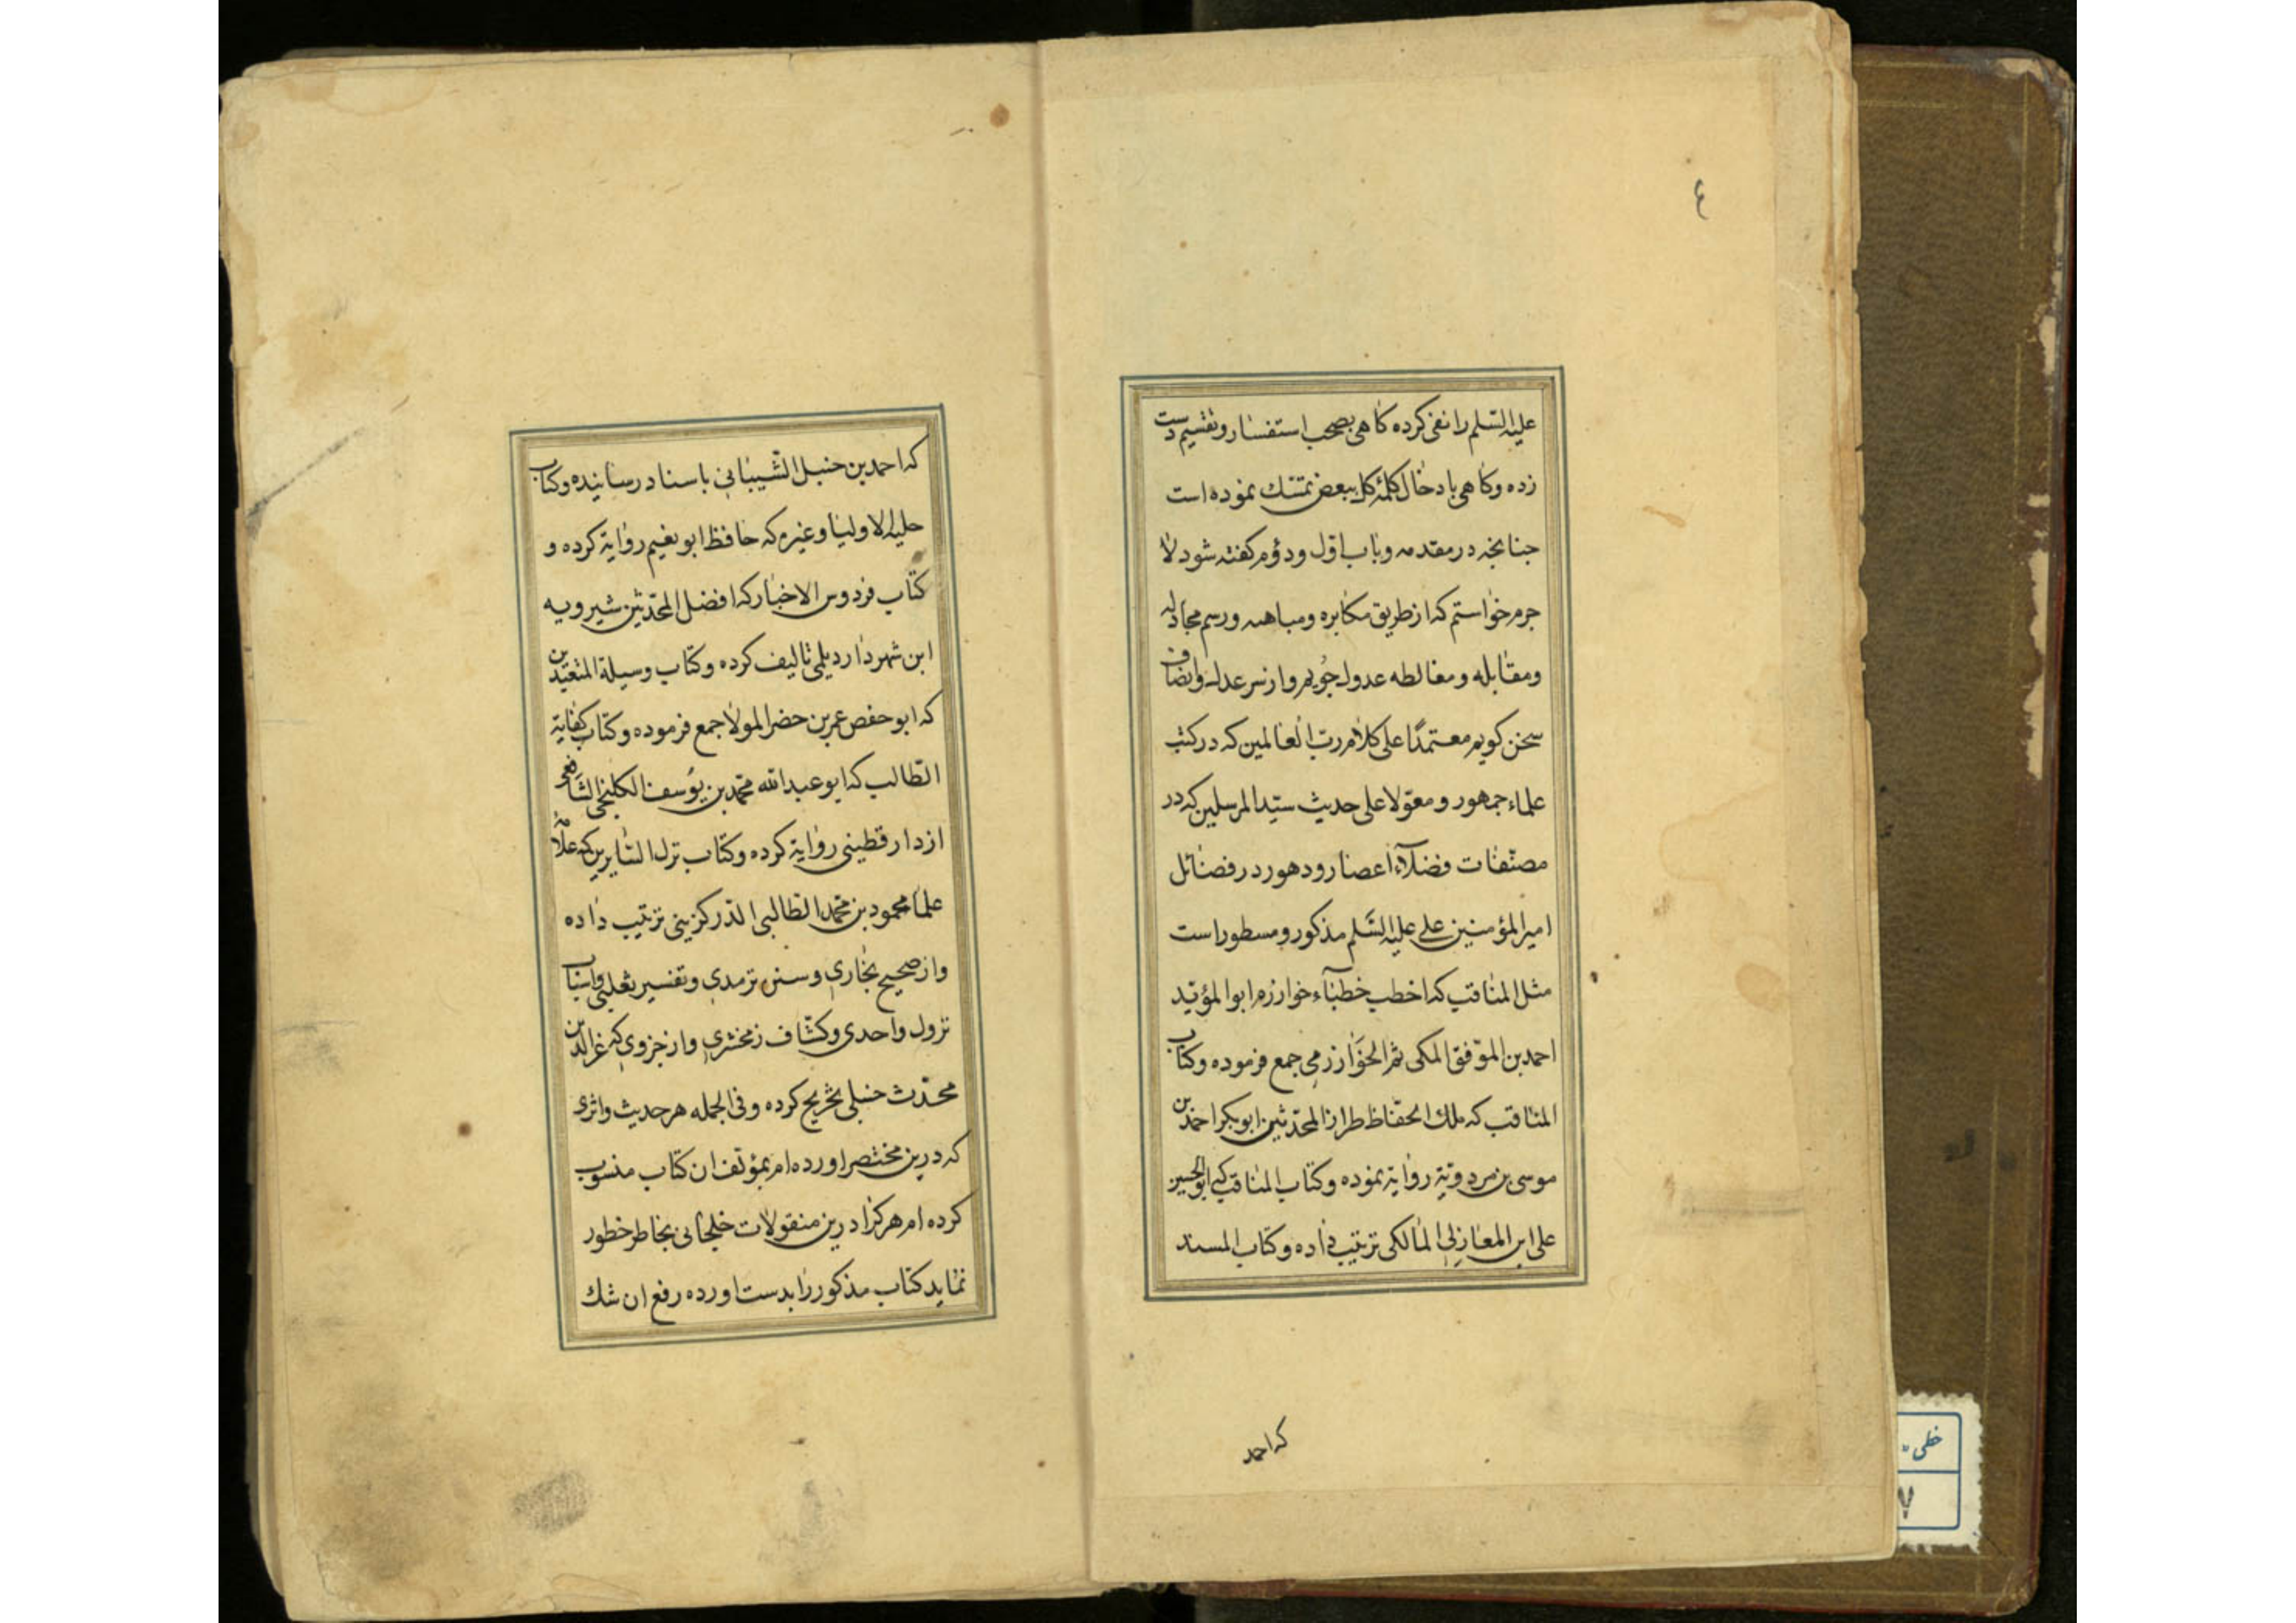 ٤
علیه السّلم را نفی کرده کاهی بصحب استفسار و تقسیم دست
زده و کاهی بادخال کلمۀ کل ببعض تمسّك نموده است
جنانجه در مقدمه و باب اوّل و دوّم کفته شود لا
جرم خواستم که از طریق مکابره و مباهته و رسم مجادله
ومقابله و مغالطه عدول جُویم و از سر عدل و انصاف
سخن کویم معتمدًا علی کلام ربّ العالمین که در کتب
علماء جمهور و معوّلا علی حدیث سیّد المرسلین که در
مصنّفات فضلآء اعصار و دهور در فضائل
امیر المؤمنین علی علیه السَّلم مذکور و مسطور است
مثل المناقب که اخطب خطبآء خوارزم ابو المؤیّد
احمد بن الموّفق المکی ثم الخوارزمی جمع فرموده و کتاب
المناقب که ملك الحفّاظ طراز المحدّثین ابو بکر احمد بن
موسی بن مردویّة روایة نموده و کتاب المناقب که ابو الحسین
علی ابن المغازلی المالکی ترتیب داده و کتاب المسند
که احمد
که احمد بن حنبل الشّیبانی باسناد رسانیده و کتاب
حلیه الاولیا و غیره که حافظ ابو نعیم روایة کرده و
کتاب فردوس الاخبار که افضل المحدّثین شیرویه
ابن شهردار دیلمی تالیف کرده و کتاب وسیلة المتعبّدین
که ابو حفص عمر بن خضر المولا جمع فرموده و کتاب کفایة
الطّالب که ابو عبد الله محمّد بن یوُسف الکلنجی الشّافعی
از دارقطینی روایة کرده و کتاب نزل السّایرین که علّامۀ
علما محمود بن محمّد الطّالبی الدّرکزینی ترتیب داده
و از صحیح بخاری و سنن ترمدی و تفسیر ثعلبی و اسباب
نزول واحدی و کشّاف زمخشری و از جزوی که عز الدّین
محدّث حنبلی تخریج کرده و فی الجمله هر حدیث و اثری
که درین مختصر اورده ام بمؤلّف ان کتاب منسوب
کرده ام هر کرا درین منقولات خلجانی بخاطر خطور
نماید کتاب مذکور را بدست اورده رفع ان شك
خطی
۷